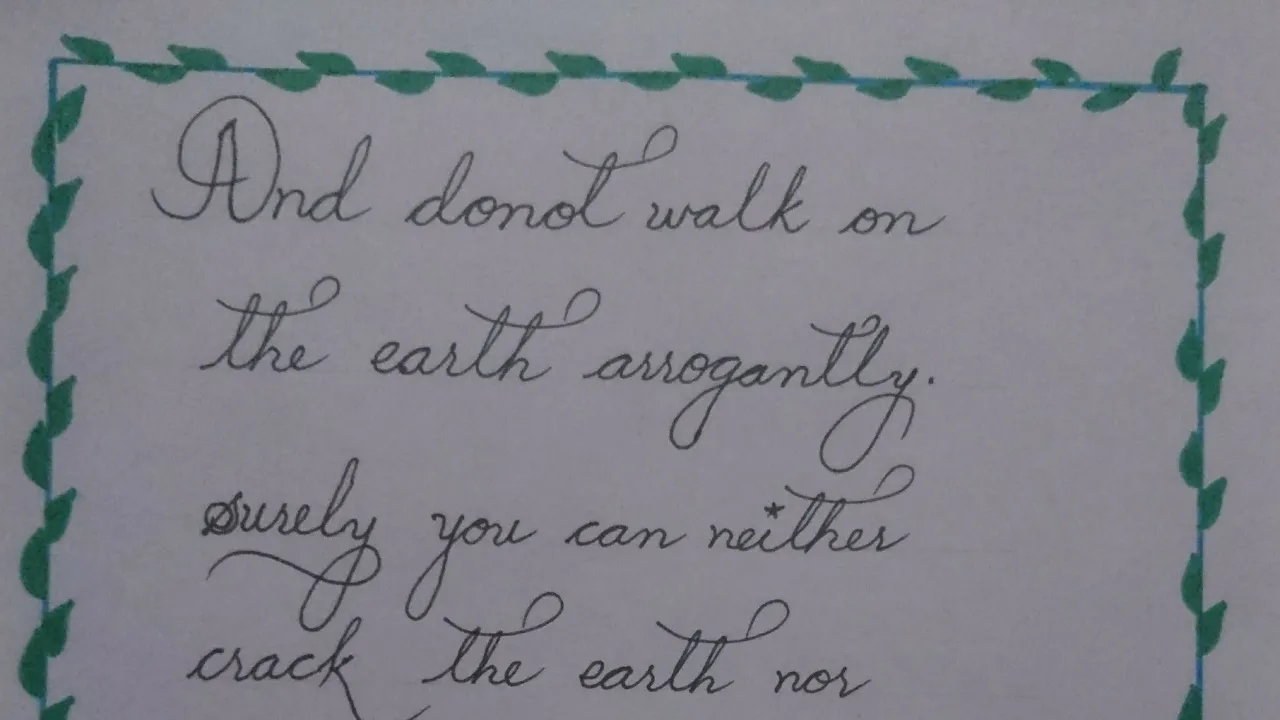 And donot walk on
the earth arrogantly.
surely you can neither
crack the earth nor